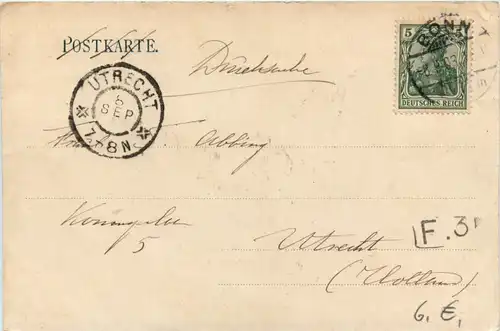 POSTKARTE.
Drucksache
5
DEUTSCHES REICH
BONN
UTRECHT
5
SEP
7-8N
Abbing
5
Utrecht
(Holland)
F.31
6.€,